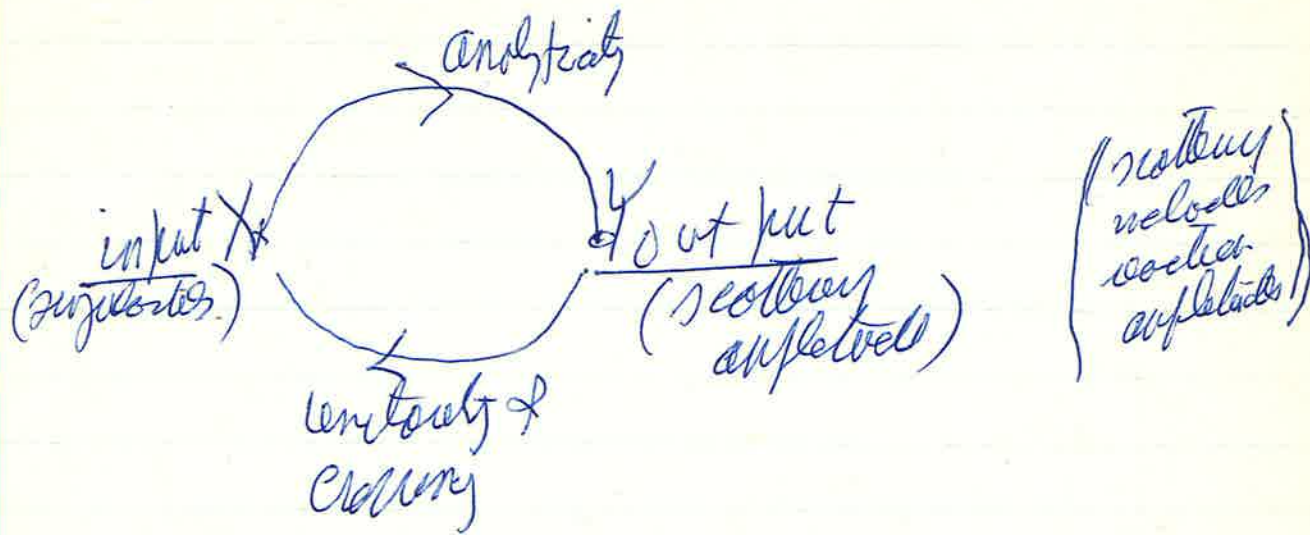 analyticity
input X
(singularities)
Y output
(scattering
amplitude)
unitarity &
crossing
(scattering
includes
reaction
amplitudes)